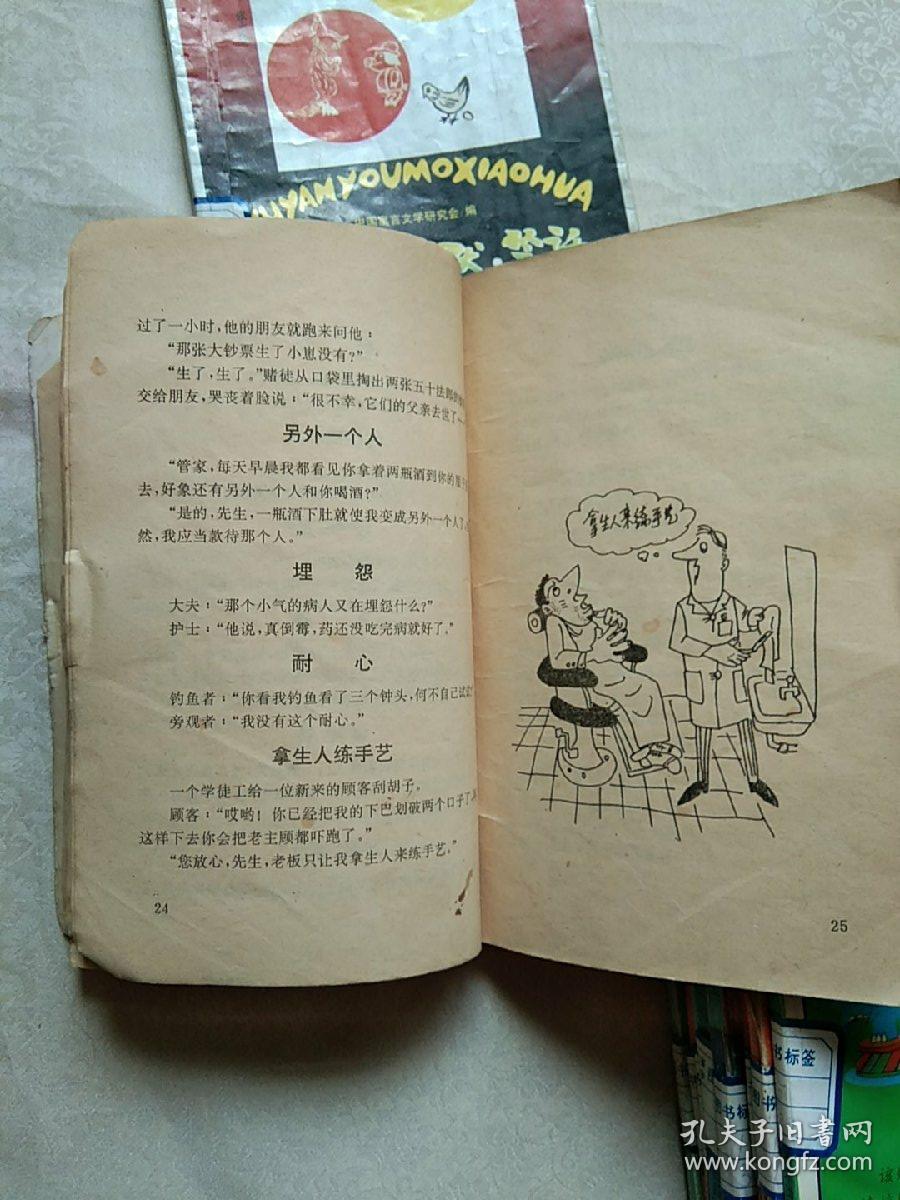 UYANYOUMOXIAOHUA
中国寓言文学研究会/编
过了一小时，他的朋友就跑来问他：
“那张大钞票生了小崽没有？”
“生了，生了。”赌徒从口袋里掏出两张五十法郎的
交给朋友，哭丧着脸说：“很不幸，它们的父亲去世了
另外一个人
“管家，每天早晨我都看见你拿着两瓶酒到你的
去，好象还有另外一个人和你喝酒？”
“是的，先生，一瓶酒下肚就使我变成另外一个人了，
然，我应当款待那个人。”
埋 怨
大夫：“那个小气的病人又在埋怨什么？”
护士：“他说，真倒霉，药还没吃完病就好了。”
耐 心
钓鱼者：“你看我钓鱼看了三个钟头，何不自己试试
旁观者：“我没有这个耐心。”
拿生人练手艺
一个学徒工给一位新来的顾客刮胡子。
顾客：“哎哟！你已经把我的下巴划破两个口子了，
这样下去你会把老主顾都吓跑了。”
“您放心，先生，老板只让我拿生人来练手艺。”
24
拿生人来练手艺
25
书标签
图书标
图书
孔夫子旧书网
www.kongfz.com